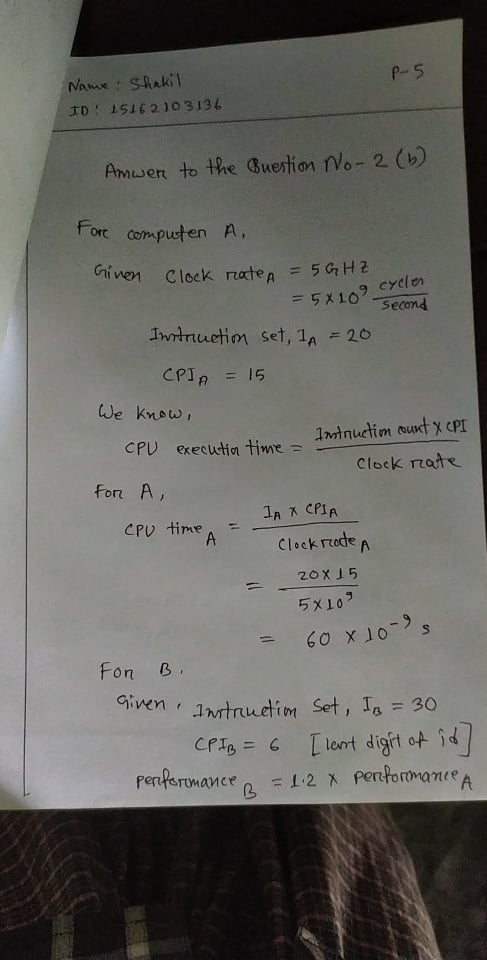 Name : Shakil
P-5
ID : 15162103136
Answer to the Question No-2 (b)
For computer A,
Given Clock rate A = 5 GHZ
= 5 X 10^9 cycles / second
Instruction set, I_A = 20
CPI_A = 15
We know,
CPU execution time = Instruction count X CPI / Clock rate
For A,
CPU time_A = I_A X CPI_A / Clock rate A
= 20 X 15 / 5 X 10^9
= 60 X 10^-9 s
For B.
Given, Instruction Set, I_B = 30
CPI_B = 6 [last digit of id]
performance_B = 1.2 X performance_A